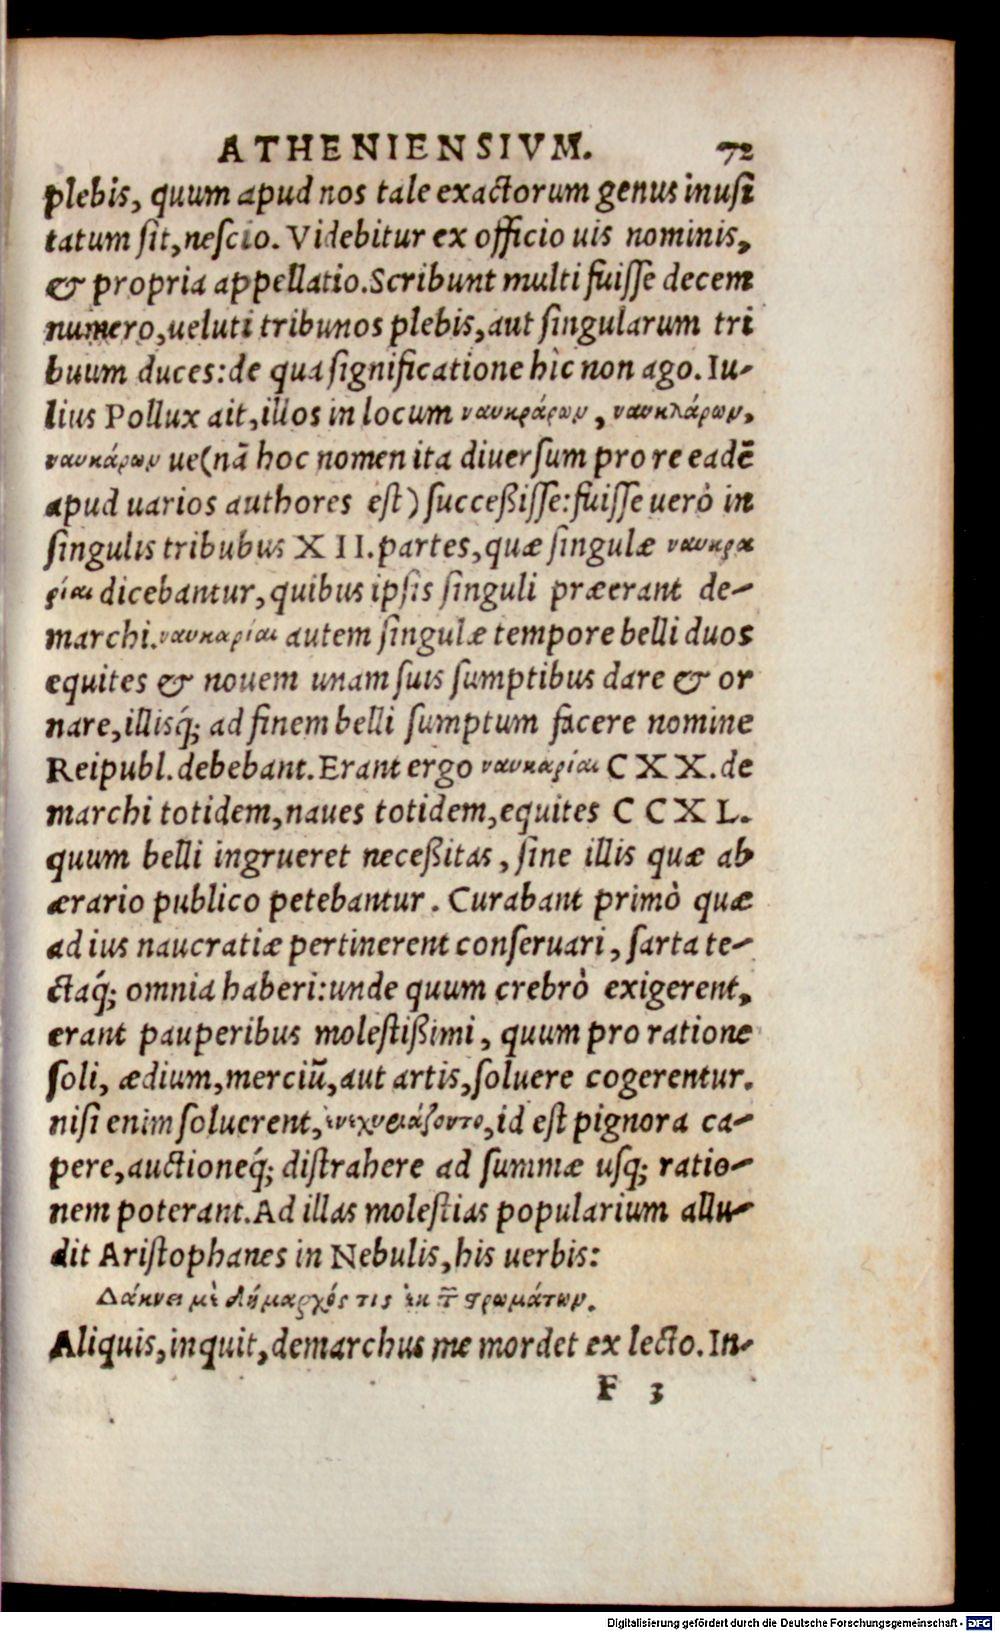 ATHENIENSIVM. 72
plebis, quum apud nos tale exactorum genus inusi
tatum sit, nescio. Videbitur ex officio uis nominis,
& propria appellatio. Scribunt multi fuisse decem
numero, ueluti tribunos plebis, aut singularum tri
buum duces: de qua significatione hìc non ago. Iu-
lius Pollux ait, illos in locum ναυκράρων, ναυκλάρων,
ναυκάρων ue (nā hoc nomen ita diuersum pro re eadē
apud uarios authores est) succeßisse: fuisse uerò in
singulis tribubus XII. partes, quæ singulæ ναυκρα
ρίαι dicebantur, quibus ipsis singuli præerant de-
marchi. ναυκαρίαι autem singulæ tempore belli duos
equites & nouem unam suis sumptibus dare & or
nare, illisq́; ad finem belli sumptum facere nomine
Reipubl. debebant. Erant ergo ναυκαρίαι CXX. de
marchi totidem, naues totidem, equites CCXL.
quum belli ingrueret neceßitas, sine illis quæ ab
ærario publico petebantur. Curabant primò quæ
ad ius naucratiæ pertinerent conseruari, sarta te-
ctaq́; omnia haberi: unde quum crebrò exigerent,
erant pauperibus molestißimi, quum pro ratione
soli, ædium, merciū, aut artis, soluere cogerentur.
nisi enim soluerent, ἐνεχυειάζοντο, id est pignora ca-
pere, auctioneq́; distrahere ad summæ usq; ratio-
nem poterant. Ad illas molestias popularium allu-
dit Aristophanes in Nebulis, his uerbis:
Δάκνει μὲ δήμαρχός τις ἐκ τ͂ στρωμάτων.
Aliquis, inquit, demarchus me mordet ex lecto. In-
F 3
Digitalisierung gefördert durch die Deutsche Forschungsgemeinschaft - DFG